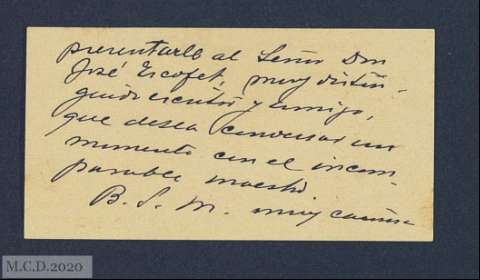 presentarle al Señor Don
José Escofet, muy distin-
guido escritor y amigo,
que desea conversar un
momento con el incom-
parable maestro
B. S. M. muy
M.C.D.2020